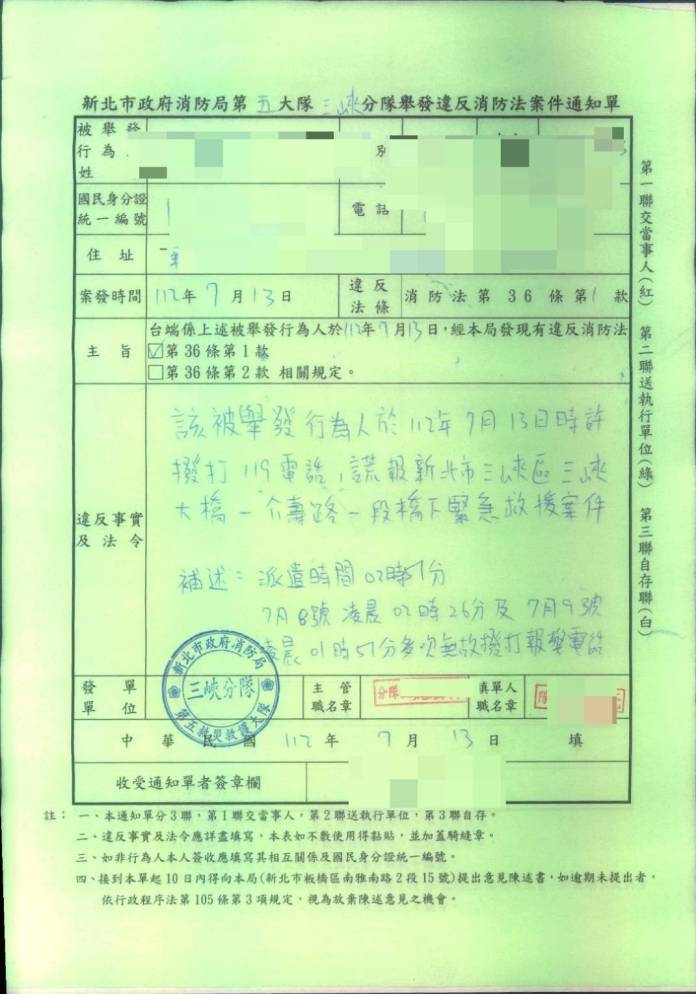 新北市政府消防局第五大隊三峽分隊舉發違反消防法案件通知單
被舉發
行為
別
姓
國民身分證
統一編號
電話
住址
案發時間 112年7月13日 違反法條 消防法第36條第1款
主旨
台端係上述被舉發行為人於112年7月13日,經本局發現有違反消防法
☑第36條第1款
☐第36條第2款 相關規定。
違反事實
及法令
該被舉發行為人於112年7月13日時許
撥打119電話,謊報新北市三峽區三峽
大橋一介壽路一段橋下緊急救援案件
補述:派遣時間02時 分
7月8號凌晨02時26分及7月9號
凌晨01時51分多次無故撥打報警電話
發單
單位
新北市政府消防局
三峽分隊
第五救災救護大隊
主管
職名章
分隊
填單人
職名章
中華民國112年7月13日 填
收受通知單者簽章欄
第一聯交當事人(紅) 第二聯送執行單位(綠) 第三聯自存聯(白)
註:一、本通知單分3聯,第1聯交當事人,第2聯送執行單位,第3聯自存。
二、違反事實及法令應詳盡填寫,本表如不敷使用得黏貼,並加蓋騎縫章。
三、如非行為人本人簽收應填寫其相互關係及國民身分證統一編號。
四、接到本單起10日內得向本局(新北市板橋區南雅南路2段15號)提出意見陳述書,如逾期未提出者,
依行政程序法第105條第3項規定,視為放棄陳述意見之機會。